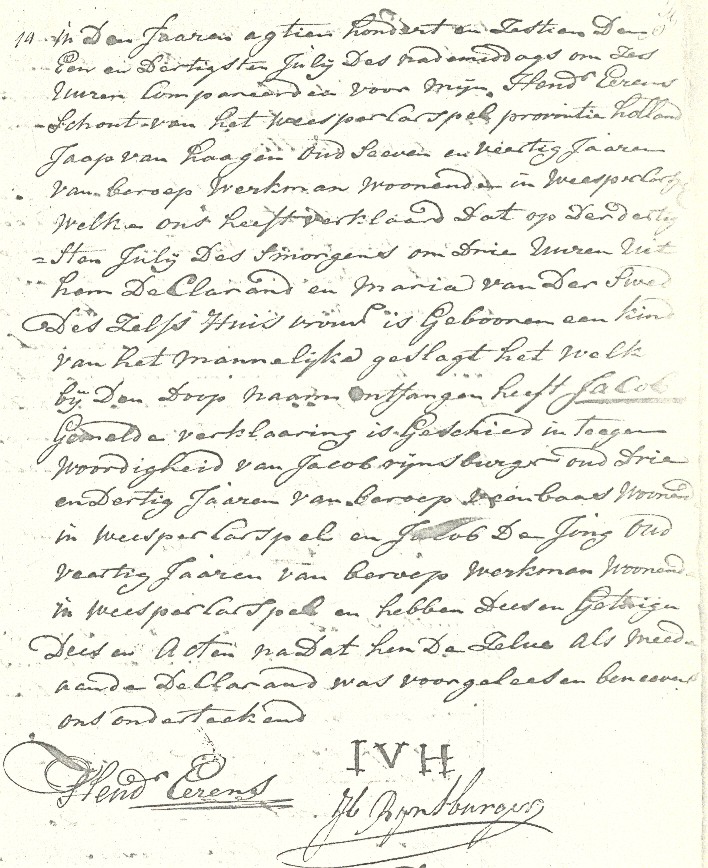 14 in Den Jaaren agtien hondert en Zestien Den
Een en Dertigsten July Des nademiddags om Zes
Uuren Compareerden voor mijn Hend.s Eerens
Schout van het weesper Carspel provintie holland
Jaap van haagen oud Seeven en veertig Jaaren
van beroep werkman woonende in weesper Carsp
welke ons heeft verklaard Dat op Den dertig
=sten July Des smorgens om Drie Uuren Uit
hem DeClarand en Maria van Der Swed
Des Zelfs Huis vrouw is Gebooren een kind
van het mannelijke geslagt het welk
bij Den Doop naam ontfangen heeft Jacob
Gemelde verklaaring is Geschied in teegen
woordigheid van Jacob rijnsburger oud Drie
en Dertig Jaaren van beroep woonend
in weesper Carspel en Jacob De Jong Oud
veertig Jaaren van beroep werkman woonend
in weesper Carspel en hebben Deesen Getuige
Deesen Acten na Dat hen De Zelve Als meede
aan de DeClarand was voorgeleesen beneevens
ons onderteekend
IVH
Hend.s Eerens
Jb Rijnsburger